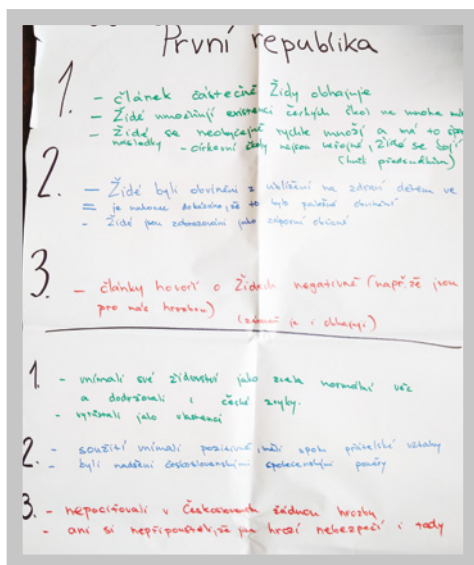 První republika
1. - článek částečně Židy obhajuje
- Židé umožňují existenci českých škol na mnoha
- Židé se neobyčejně rychle množí a má to
následky - církevní školy nejsou veřejné, Židé se bojí
(kvůli předsudkům)
2. - Židé byli obviněni z ublížení na zdraví dětem ve
= je nakonec dokázáno, že to bylo falešné obvinění
- Židé jsou zobrazováni jako záporní občané
3. - články hovoří o Židech negativně (např. že jsou
pro nás hrozbou) (zároveň je i obhajují)
1. - vnímali své židovství jako zcela normální věc
a dodržovali i české zvyky.
- vyrůstali jako vlastenci
2. - soužití vnímali pozitivně, měli spolu přátelské vztahy
- byli nadšení československými společenskými poměry
3. - nepociťovali v Československu žádnou hrozbu
- ani si nepřipouštěli, že jim hrozí nebezpečí i tady